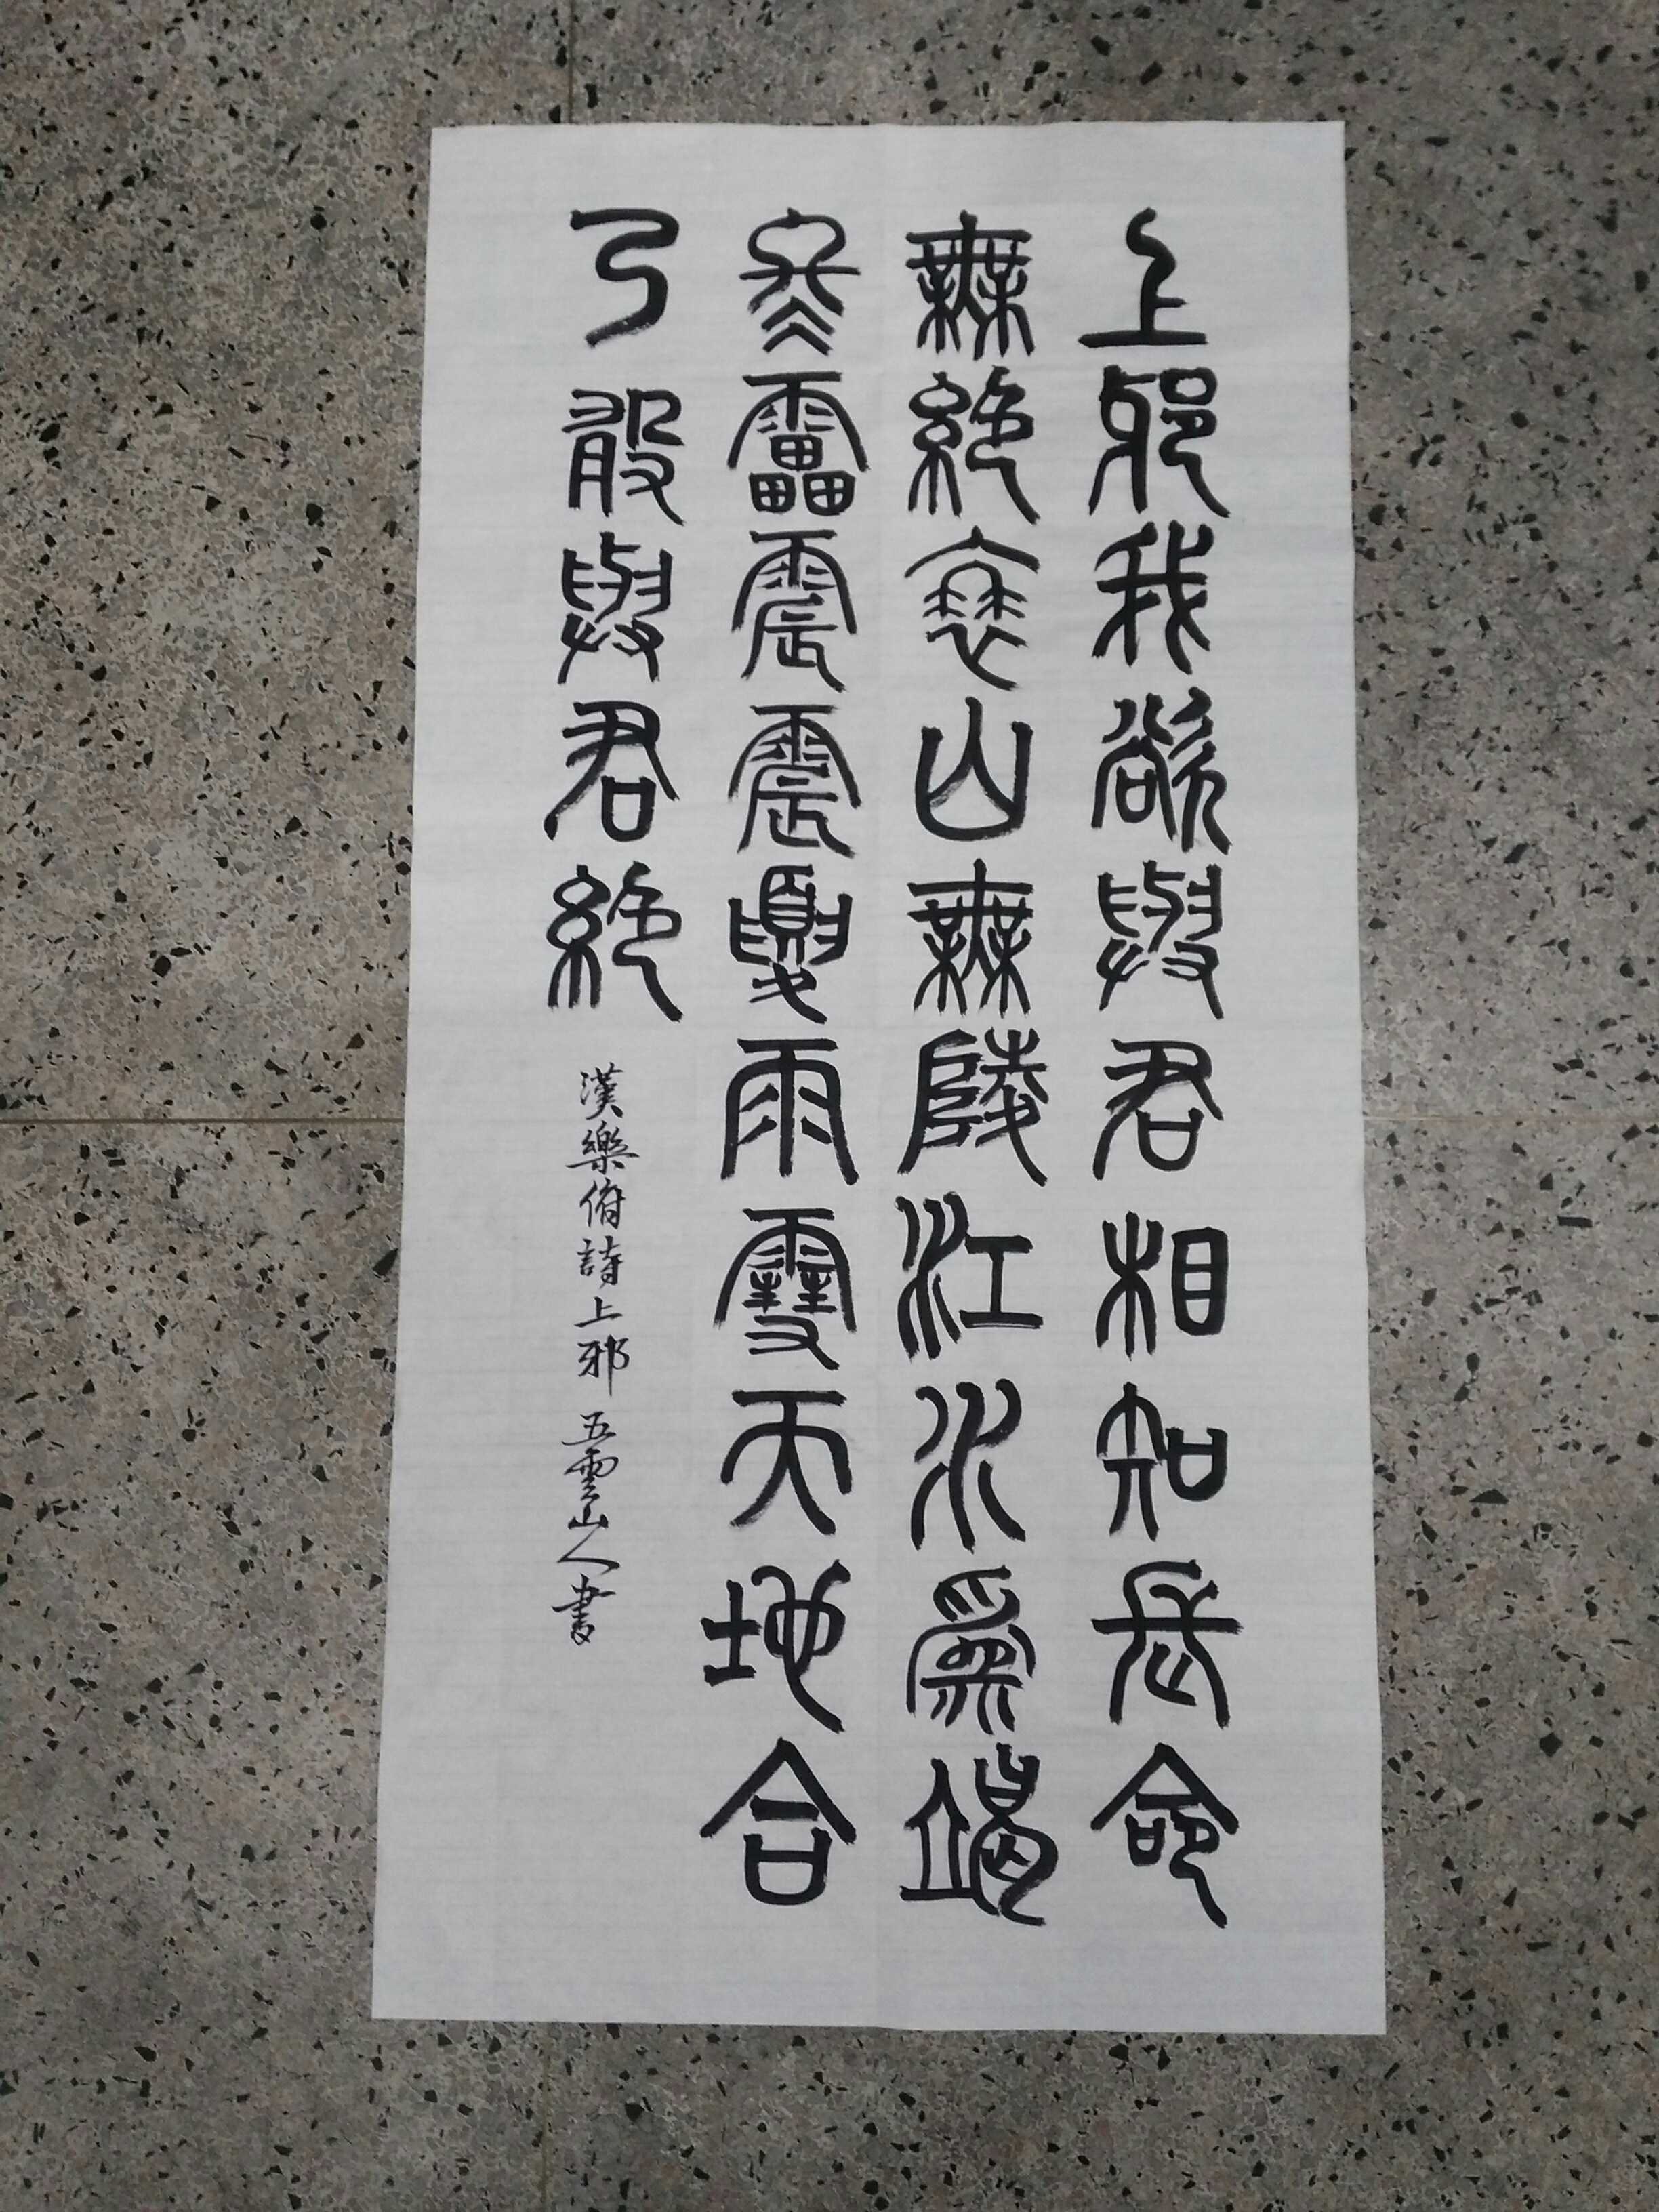 上邪我欲與君相知長命
無絕衰山無陵江水為竭
冬靁震震夏雨雪天地合
乃敢與君絕
漢樂府詩上邪 五雲山人書